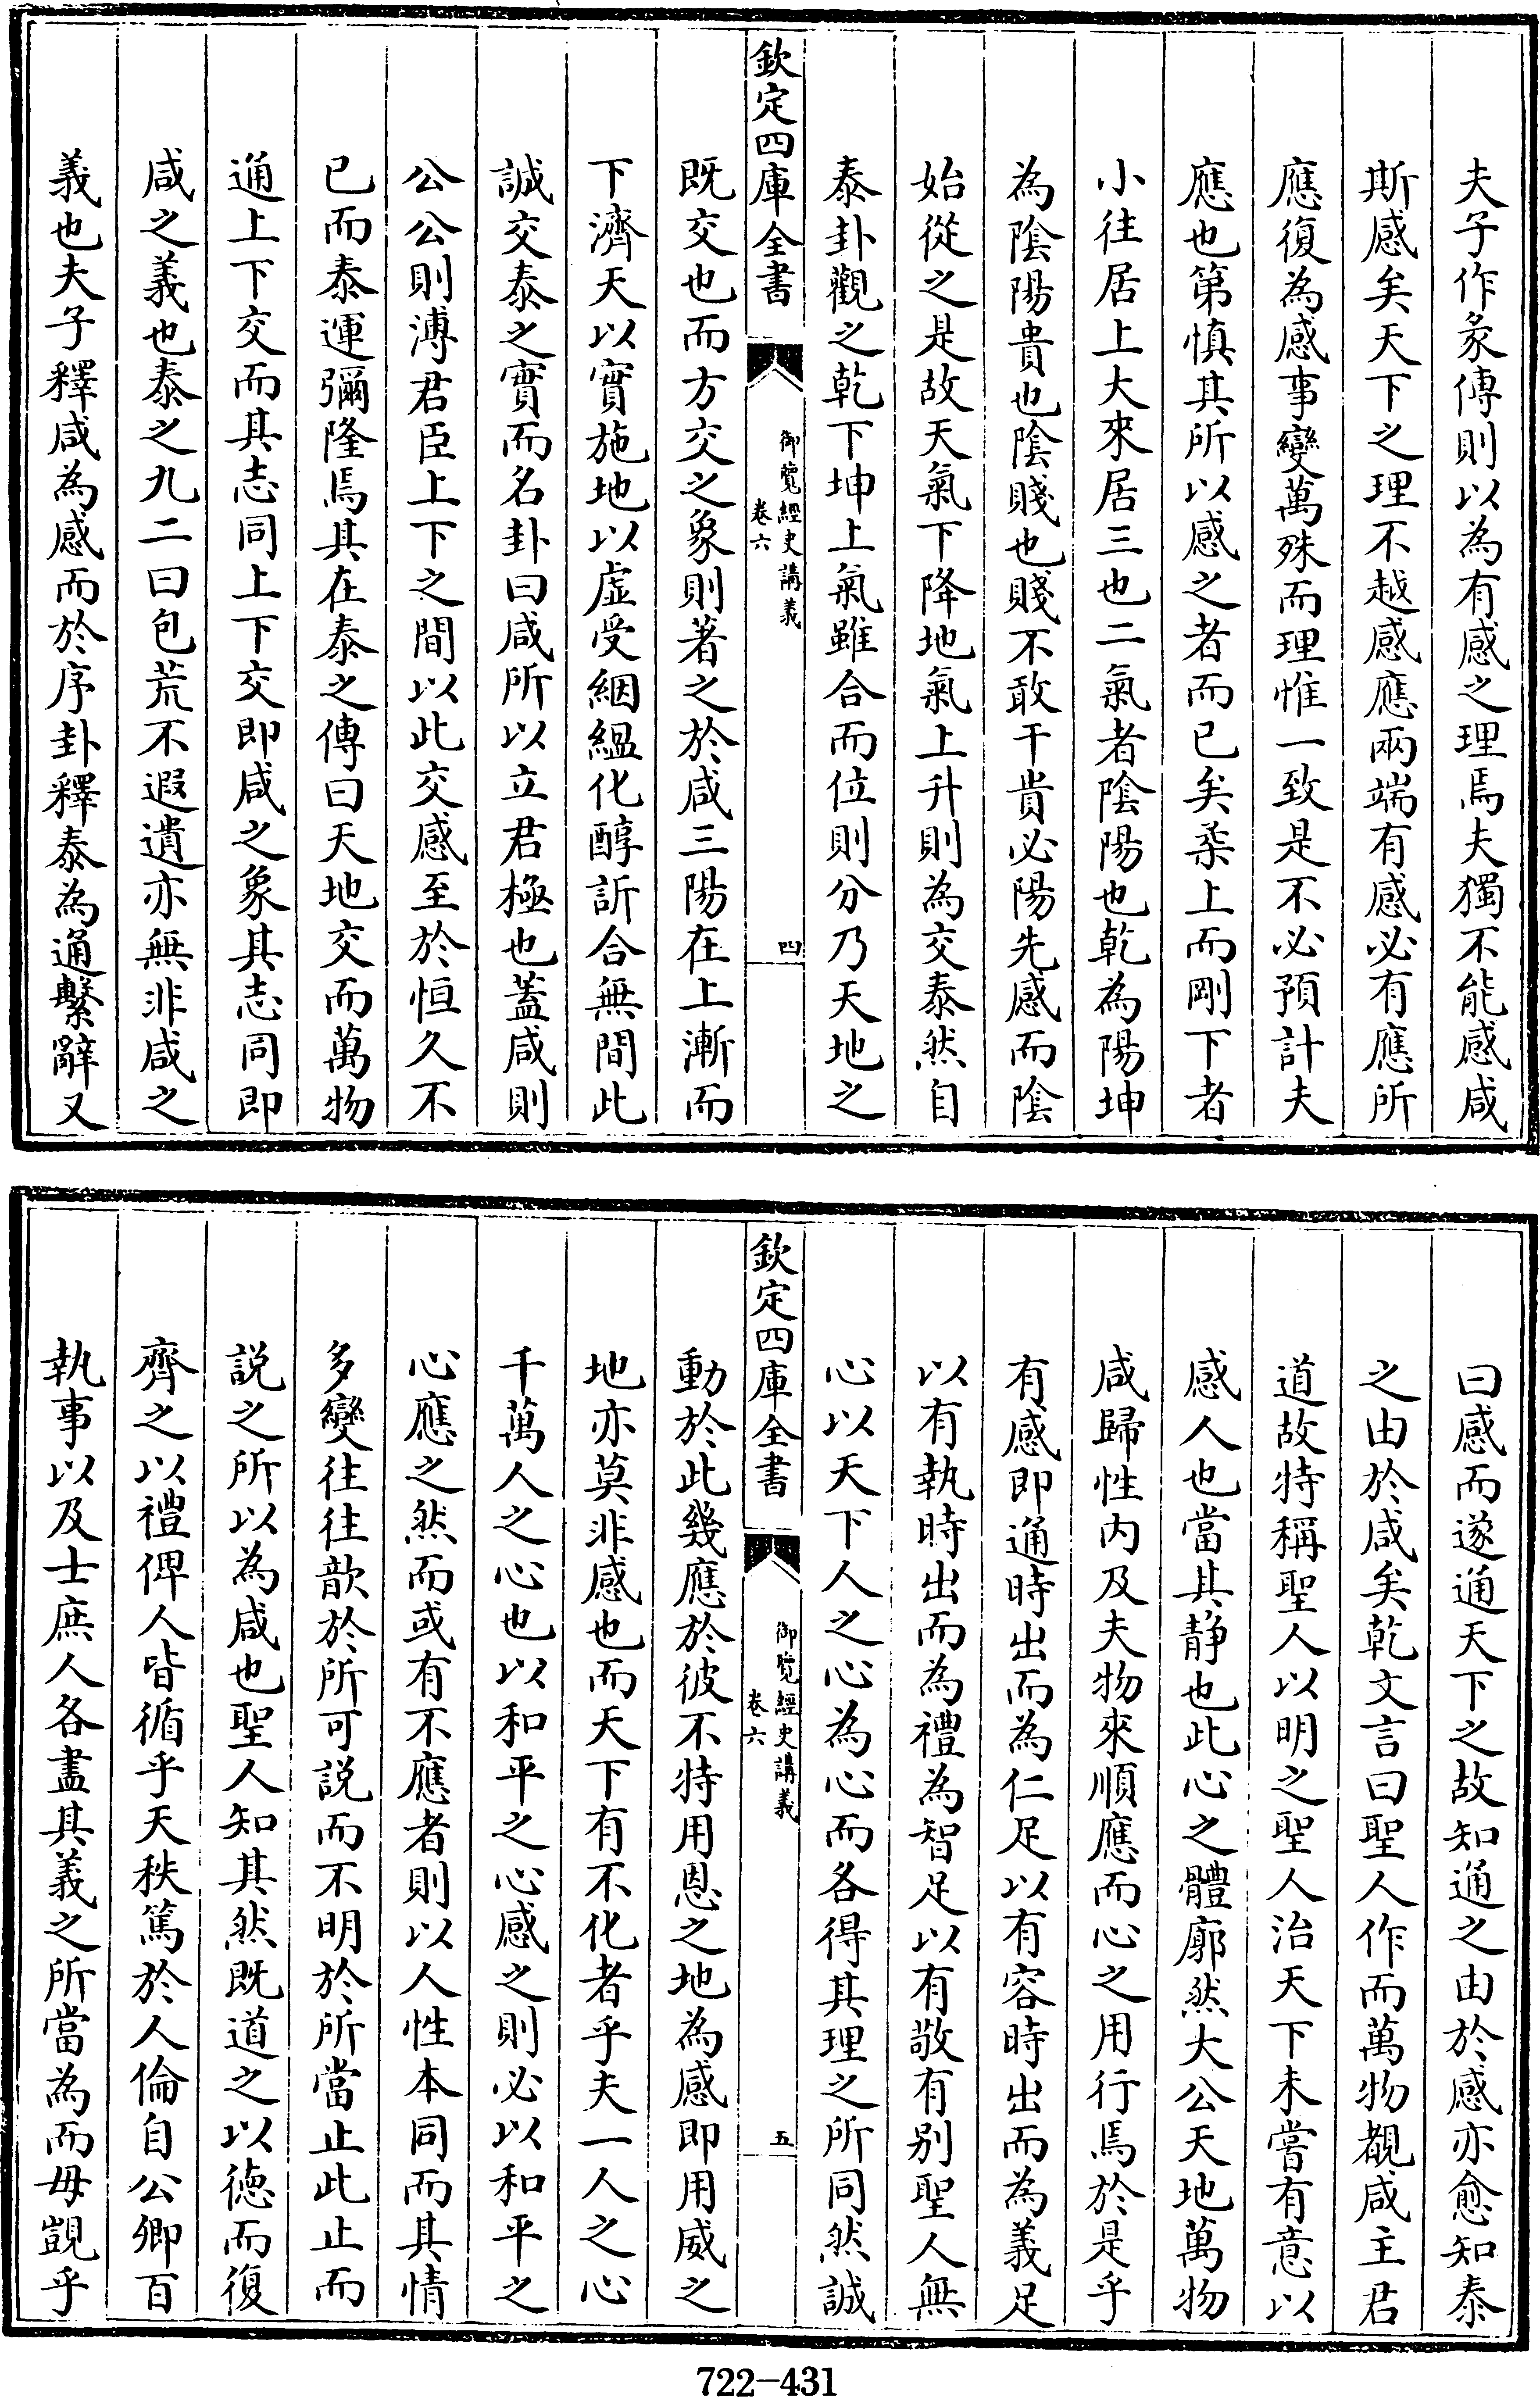 夫子作彖傳則以為有感之理焉夫獨不能感咸
斯感矣天下之理不越感應兩端有感必有應所
應復為感事變萬殊而理惟一致是不必預計夫
應也第慎其所以感之者而已矣柔上而剛下者
小往居上大來居三也二氣者陰陽也乾為陽坤
為陰陽貴也陰賤也賤不敢干貴必陽先感而陰
始從之是故天氣下降地氣上升則為交泰然自
泰卦觀之乾下坤上氣雖合而位則分乃天地之
欽定四庫全書
御覽經史講義
卷六
四
既交也而方交之象則著之於咸三陽在上漸而
下濟天以實施地以虛受絪縕化醇訢合無間此
誠交泰之實而名卦曰咸所以立君極也蓋咸則
公公則溥君臣上下之間以此交感至於恒久不
已而泰運彌隆焉其在泰之傳曰天地交而萬物
通上下交而其志同上下交即咸之象其志同即
咸之義也泰之九二曰包荒不遐遺亦無非咸之
義也夫子釋咸為感而於序卦釋泰為通繫辭又
曰感而遂通天下之故知通之由於感亦愈知泰
之由於咸矣乾文言曰聖人作而萬物覩咸主君
道故特稱聖人以明之聖人治天下未嘗有意以
感人也當其静也此心之體廓然大公天地萬物
咸歸性内及夫物來順應而心之用行焉於是乎
有感即通時出而為仁足以有容時出而為義足
以有執時出而為禮為智足以有敬有别聖人無
心以天下人之心為心而各得其理之所同然誠
欽定四庫全書
御覽經史講義
卷六
五
動於此幾應於彼不特用恩之地為感即用威之
地亦莫非感也而天下有不化者乎夫一人之心
千萬人之心也以和平之心感之則必以和平之
心應之然而或有不應者則以人性本同而其情
多變往往歆於所可説而不明於所當止此止而
説之所以為咸也聖人知其然既道之以德而復
齊之以禮俾人皆循乎天秩篤於人倫自公卿百
執事以及士庶人各盡其義之所當為而毋覬乎
722-431